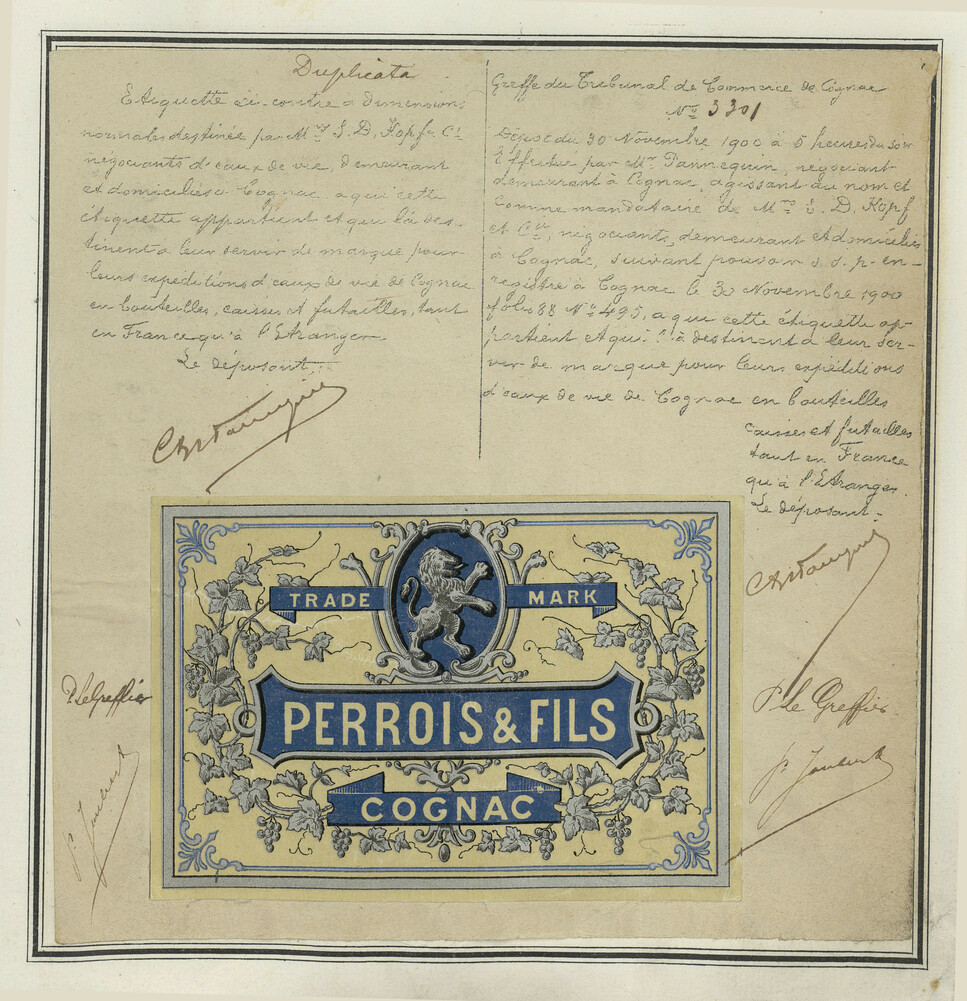 Duplicata
Etiquette ci-contre a dimensions
normales destinée par Mrs J. D. Kopf & Cie
négociants d'eaux de vie, demeurant
et domiciliés à Cognac, a qui cette
étiquette appartient et qui la des-
tinent à leur servir de marque pour
leurs expéditions d'eaux de vie de Cognac
en bouteilles, caisses et futailles, tant
en France qu'à l'Etranger
Le déposant,
Greffe du Tribunal de Commerce de Cognac
No 3301
Dépot du 30 Novembre 1900 à 5 heures du soir
effectué par Mr Pannequin, négociant
demeurant à Cognac, agissant au nom et
comme mandataire de Mrs J. D. Kopf
et Cie, négociants, demeurant et domiciliés
à Cognac, suivant pouvoir s. s. p. en-
registré à Cognac le 30 Novembre 1900
folio 88 No 495, a qui cette étiquette ap-
partient et qui la destinent à leur ser-
vir de marque pour leurs expéditions
d'eaux de vie de Cognac en bouteilles
caisses et futailles
tant en France
qu'à l'Etranger.
Le déposant.
TRADE MARK
PERROIS & FILS
COGNAC
P. Le Greffier
P. Le Greffier